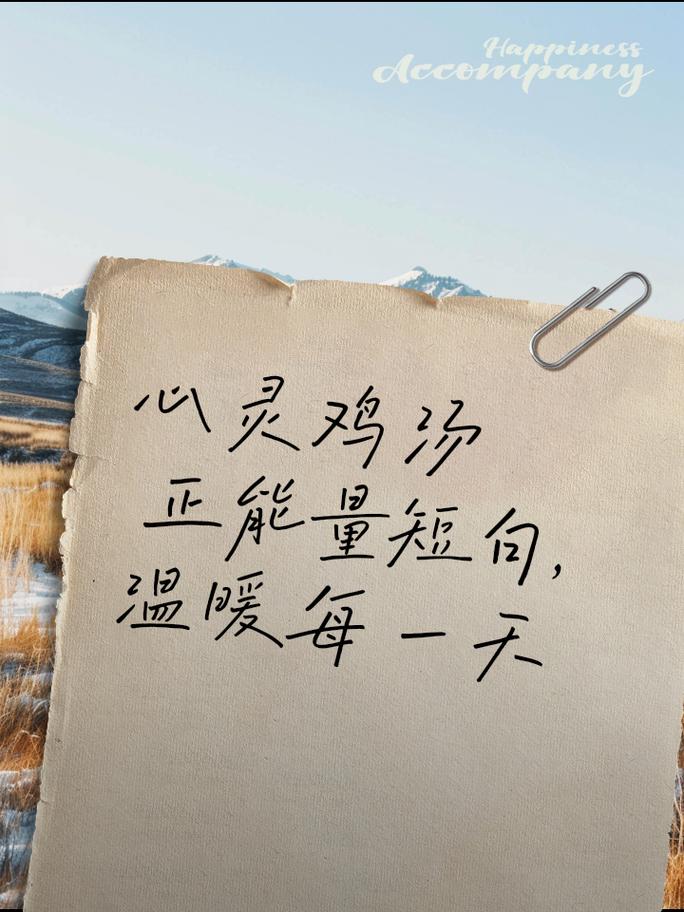 Happiness
Accompany
心灵鸡汤
正能量短句,
温暖每一天